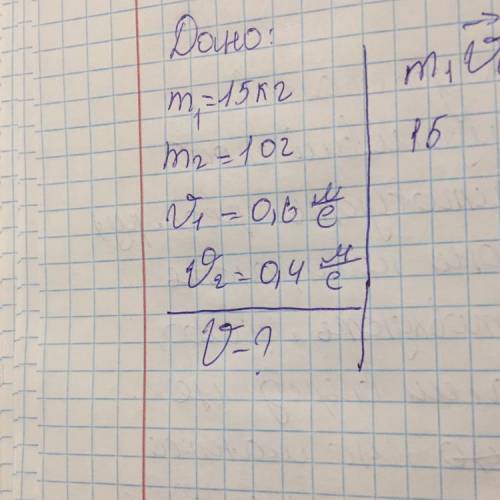 Дано:
m₁=15кг
m₂=10г
υ₁=0,6 м/с
υ₂=0,4 м/с
υ-?
m₁υ⃗
15